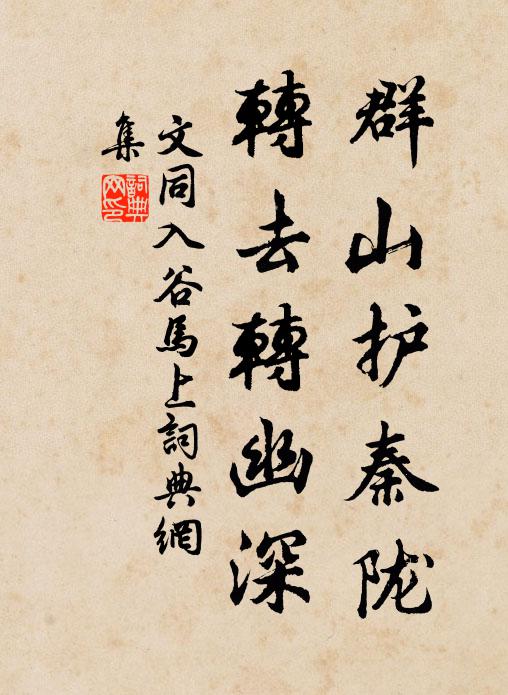 群山护秦陇
轉去轉幽深
文同入谷馬上詞典網
集
詞典網印